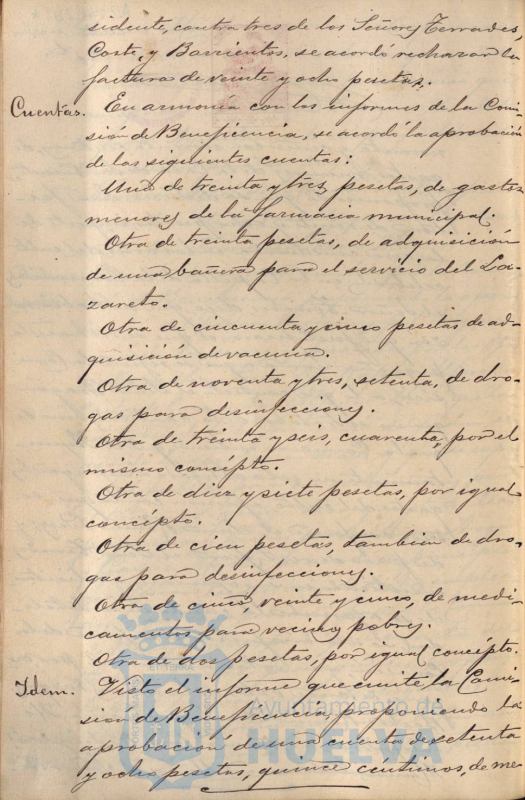 sidente, contra tres de los Señores Terrades,
Coste, y Barrientos, se acordó rechazar la
factura de veinte y ocho pesetas.
Cuentas. En armonía con los informes de la Comi-
sión de Beneficencia, se acordó la aprobación
de las siguientes cuentas:
Una de treinta y tres pesetas, de gastos
menores de la farmacia municipal.
Otra de treinta pesetas, de adquisición
de una bañera para el servicio del La-
zareto.
Otra de cincuenta y cinco pesetas de ad-
quisición de vacuna.
Otra de noventa y tres, setenta, de dro-
gas para desinfecciones.
Otra de treinta y seis, cuarenta, por el
mismo concépto.
Otra de diez y siete pesetas, por igual
concépto.
Otra de cien pesetas, tambien de dro-
gas para desinfecciones.
Otra de cinco, veinte y cinco, de medi-
camentos para vecinos pobres.
Otra de dos pesetas, por igual concépto.
Idem. Visto el informe que emite la Comi-
sión de Beneficencia, proponiendo la
aprobación de una cuenta de setenta
y ocho pesetas, quince céntimos, de me-
Ayuntamiento de
HUELVA